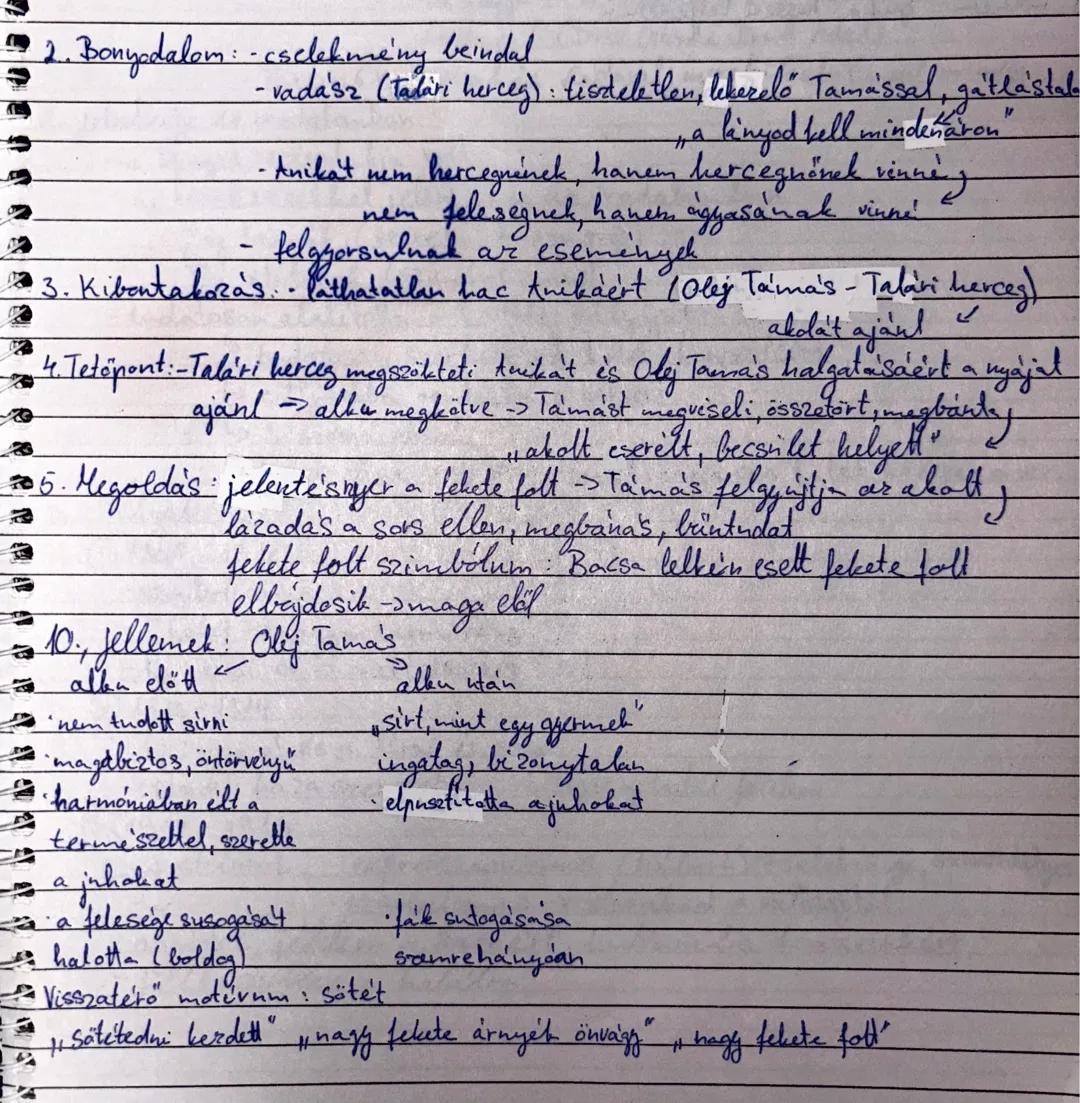 2. Bonyodalom: - cselekmény beindul
- vadász (Talári herceg): tiszteletlen, lekezelő Tamással, gátlástala
„a lányod kell mindenáron"
- Anikát nem hercegnének, hanem hercegnőnek vinné
nem feleségnek, hanem ágyasának vinné
- felgyorsulnak az események
3. Kibontakozás: - láthatatlan harc Anikáért (Olej Tamás - Talári herceg)
akolát ajánl
4. Tetőpont: - Talári herceg megszökteti Anikát és Olej Tamás halgatásáért a nyáját
ajánl -> alku megkötve -> Tamást megviseli, összetört, megbánta
„akolt cserélt, becsület helyett"
5. Megoldás: jelentésnyer a fekete folt -> Tamás felgyújtja az akolt
lázadás a sors ellen, megbánás, bűntudat
fekete folt szimbólum: Bacsa lelkén esett fekete folt
elbújdosik -> maga elől
10., Jellemek: Olej Tamás
alku előtt alku után
· nem tudott sírni „sírt, mint egy gyermek"
· magabiztos, öntörvényű ingatag, bizonytalan
· harmóniában élt a · elpusztította a juhokat
természettel, szerette
a juhokat
· a felesége susogását · fák sutogásása
hallotta (boldog) szemrehányóan
Visszatérő motívum: sötét
„sötétedni kezdett" „nagy fekete árnyék" „nagy fekete folt"